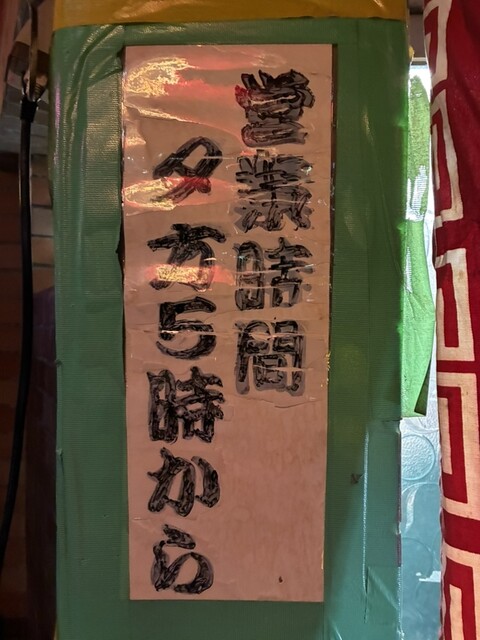 営業時間
夕方5時から